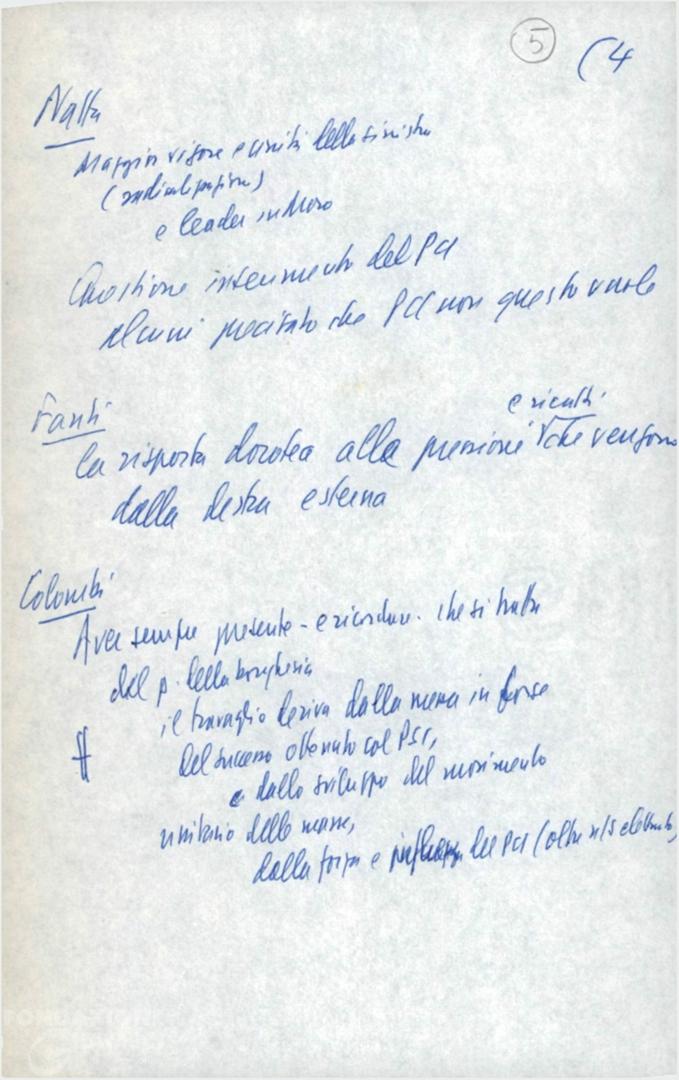 5 (4
Natta
Maggior vigore e unità della sinistra
(radicalizzazione)
e leader in Moro
Questione inserimento del PCI
alcuni precisato che PCI non questo vuole
Fanti
e ricatti
la risposta dorotea alla pressione che vengono
dalla destra esterna
Colombi
Aver sempre presente - e ricordare - che si tratta
del p. della borghesia
il travaglio deriva dalla messa in forse
del successo ottenuto col PSI,
e dallo sviluppo del movimento
unitario delle masse,
dalla forza e influenza del PCI (oltre 1/5 elettorato,